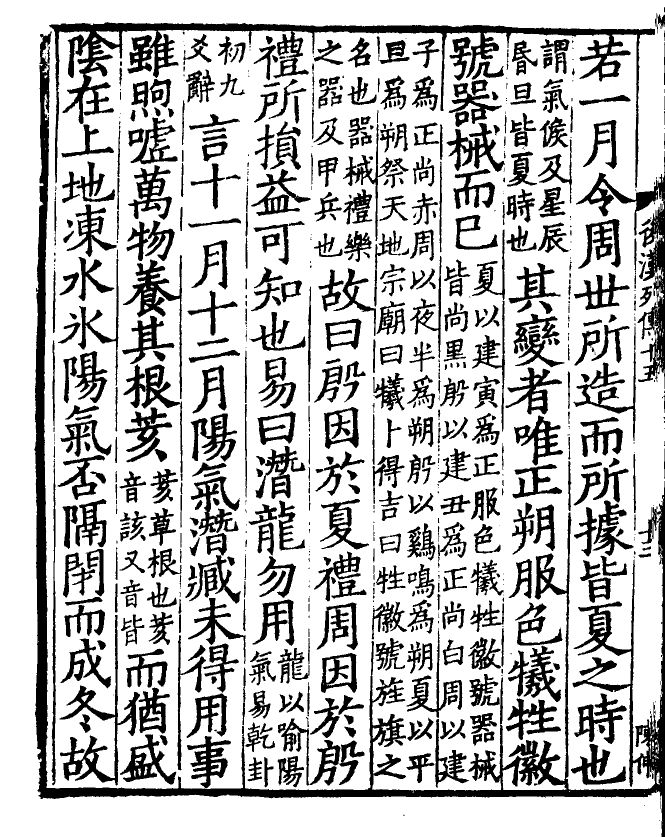 若一月令周丗所造而所據皆夏之時也
謂氣候及星辰昬旦皆夏時也其變者唯正朔服色犧牲徽
號器械而巳夏以建寅爲正服色犧牲徽號器械皆尚黑殷以建丑爲正尚白周以建
子爲正尚赤周以夜半爲朔殷以鷄鳴爲朔夏以平旦爲朔祭天地宗廟曰犧卜得吉曰牲徽號旌旗之
名也器械禮樂之器及甲兵也故曰殷因於夏禮周因於殷
禮所損益可知也易曰潛龍勿用龍以喻陽氣易乾卦
初九爻辭言十一月十二月陽氣潛臧未得用事
雖煦噓萬物養其根荄荄草根也荄音該又音皆而猶盛
隂在上地凍水氷陽氣否隔閇而成冬故
漢列傳十五
十三